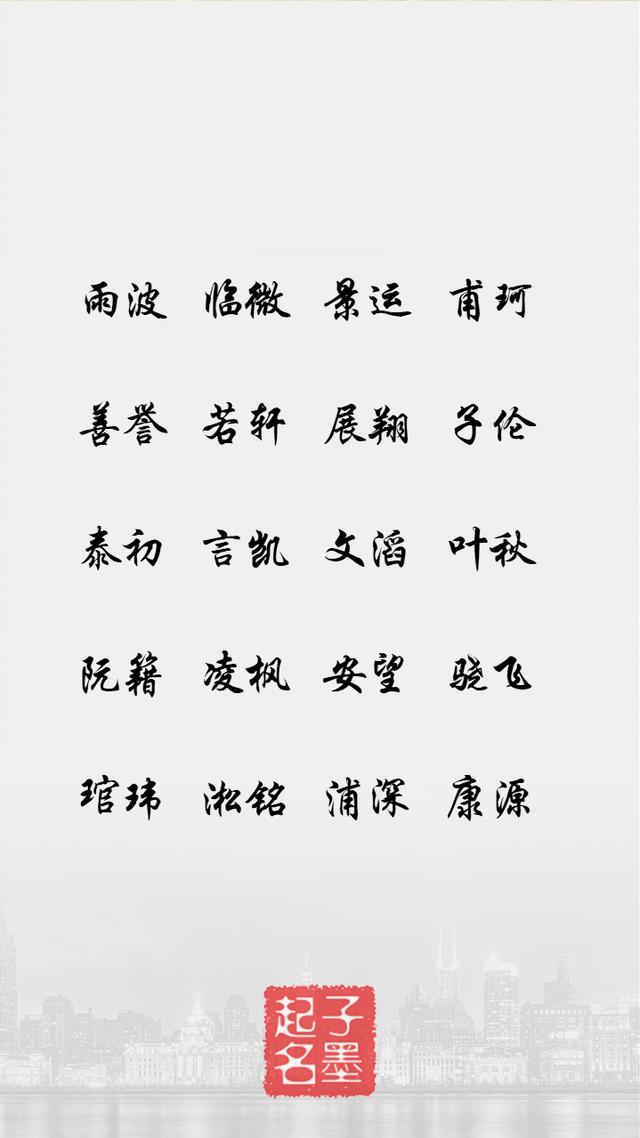 雨波 临微 景运 甫珂
善誉 若轩 展翔 子伦
泰初 言凯 文滔 叶秋
阮籍 凌枫 安望 骁飞
琯玮 淞铭 浦深 康源
子墨
起名